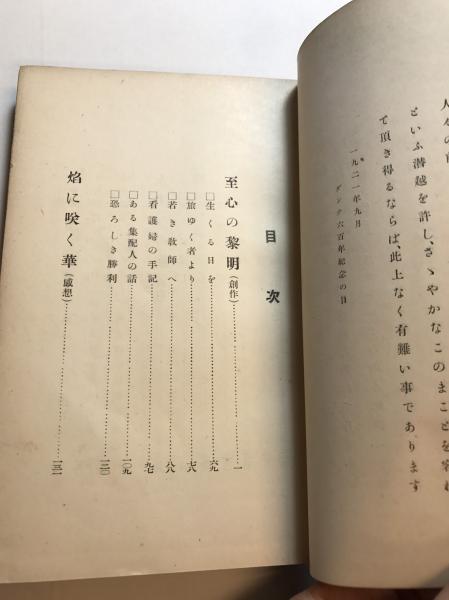 といふ潜越を許し、さゝやかなこのまことを容れ
て頂き得るならば、此上なく有難い事であります
一九二一年九月
ダンテ六百年紀念の日
目次
至心の黎明(創作)……一
□生くる日を……六九
□旅ゆく者より……七八
□若き敎師へ……八八
□看護婦の手記……九七
□ある集配人の話……一〇九
□恐ろしき勝利……一二〇
焰に咲く華(感想)……一三一